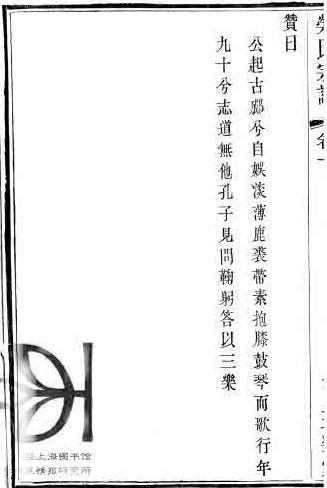 贊曰
公起古郕兮自娛淡薄鹿裘帶素抱膝鼓琴而歌行年
九十兮志道無他孔子見問鞠躬答以三樂
上海图书馆